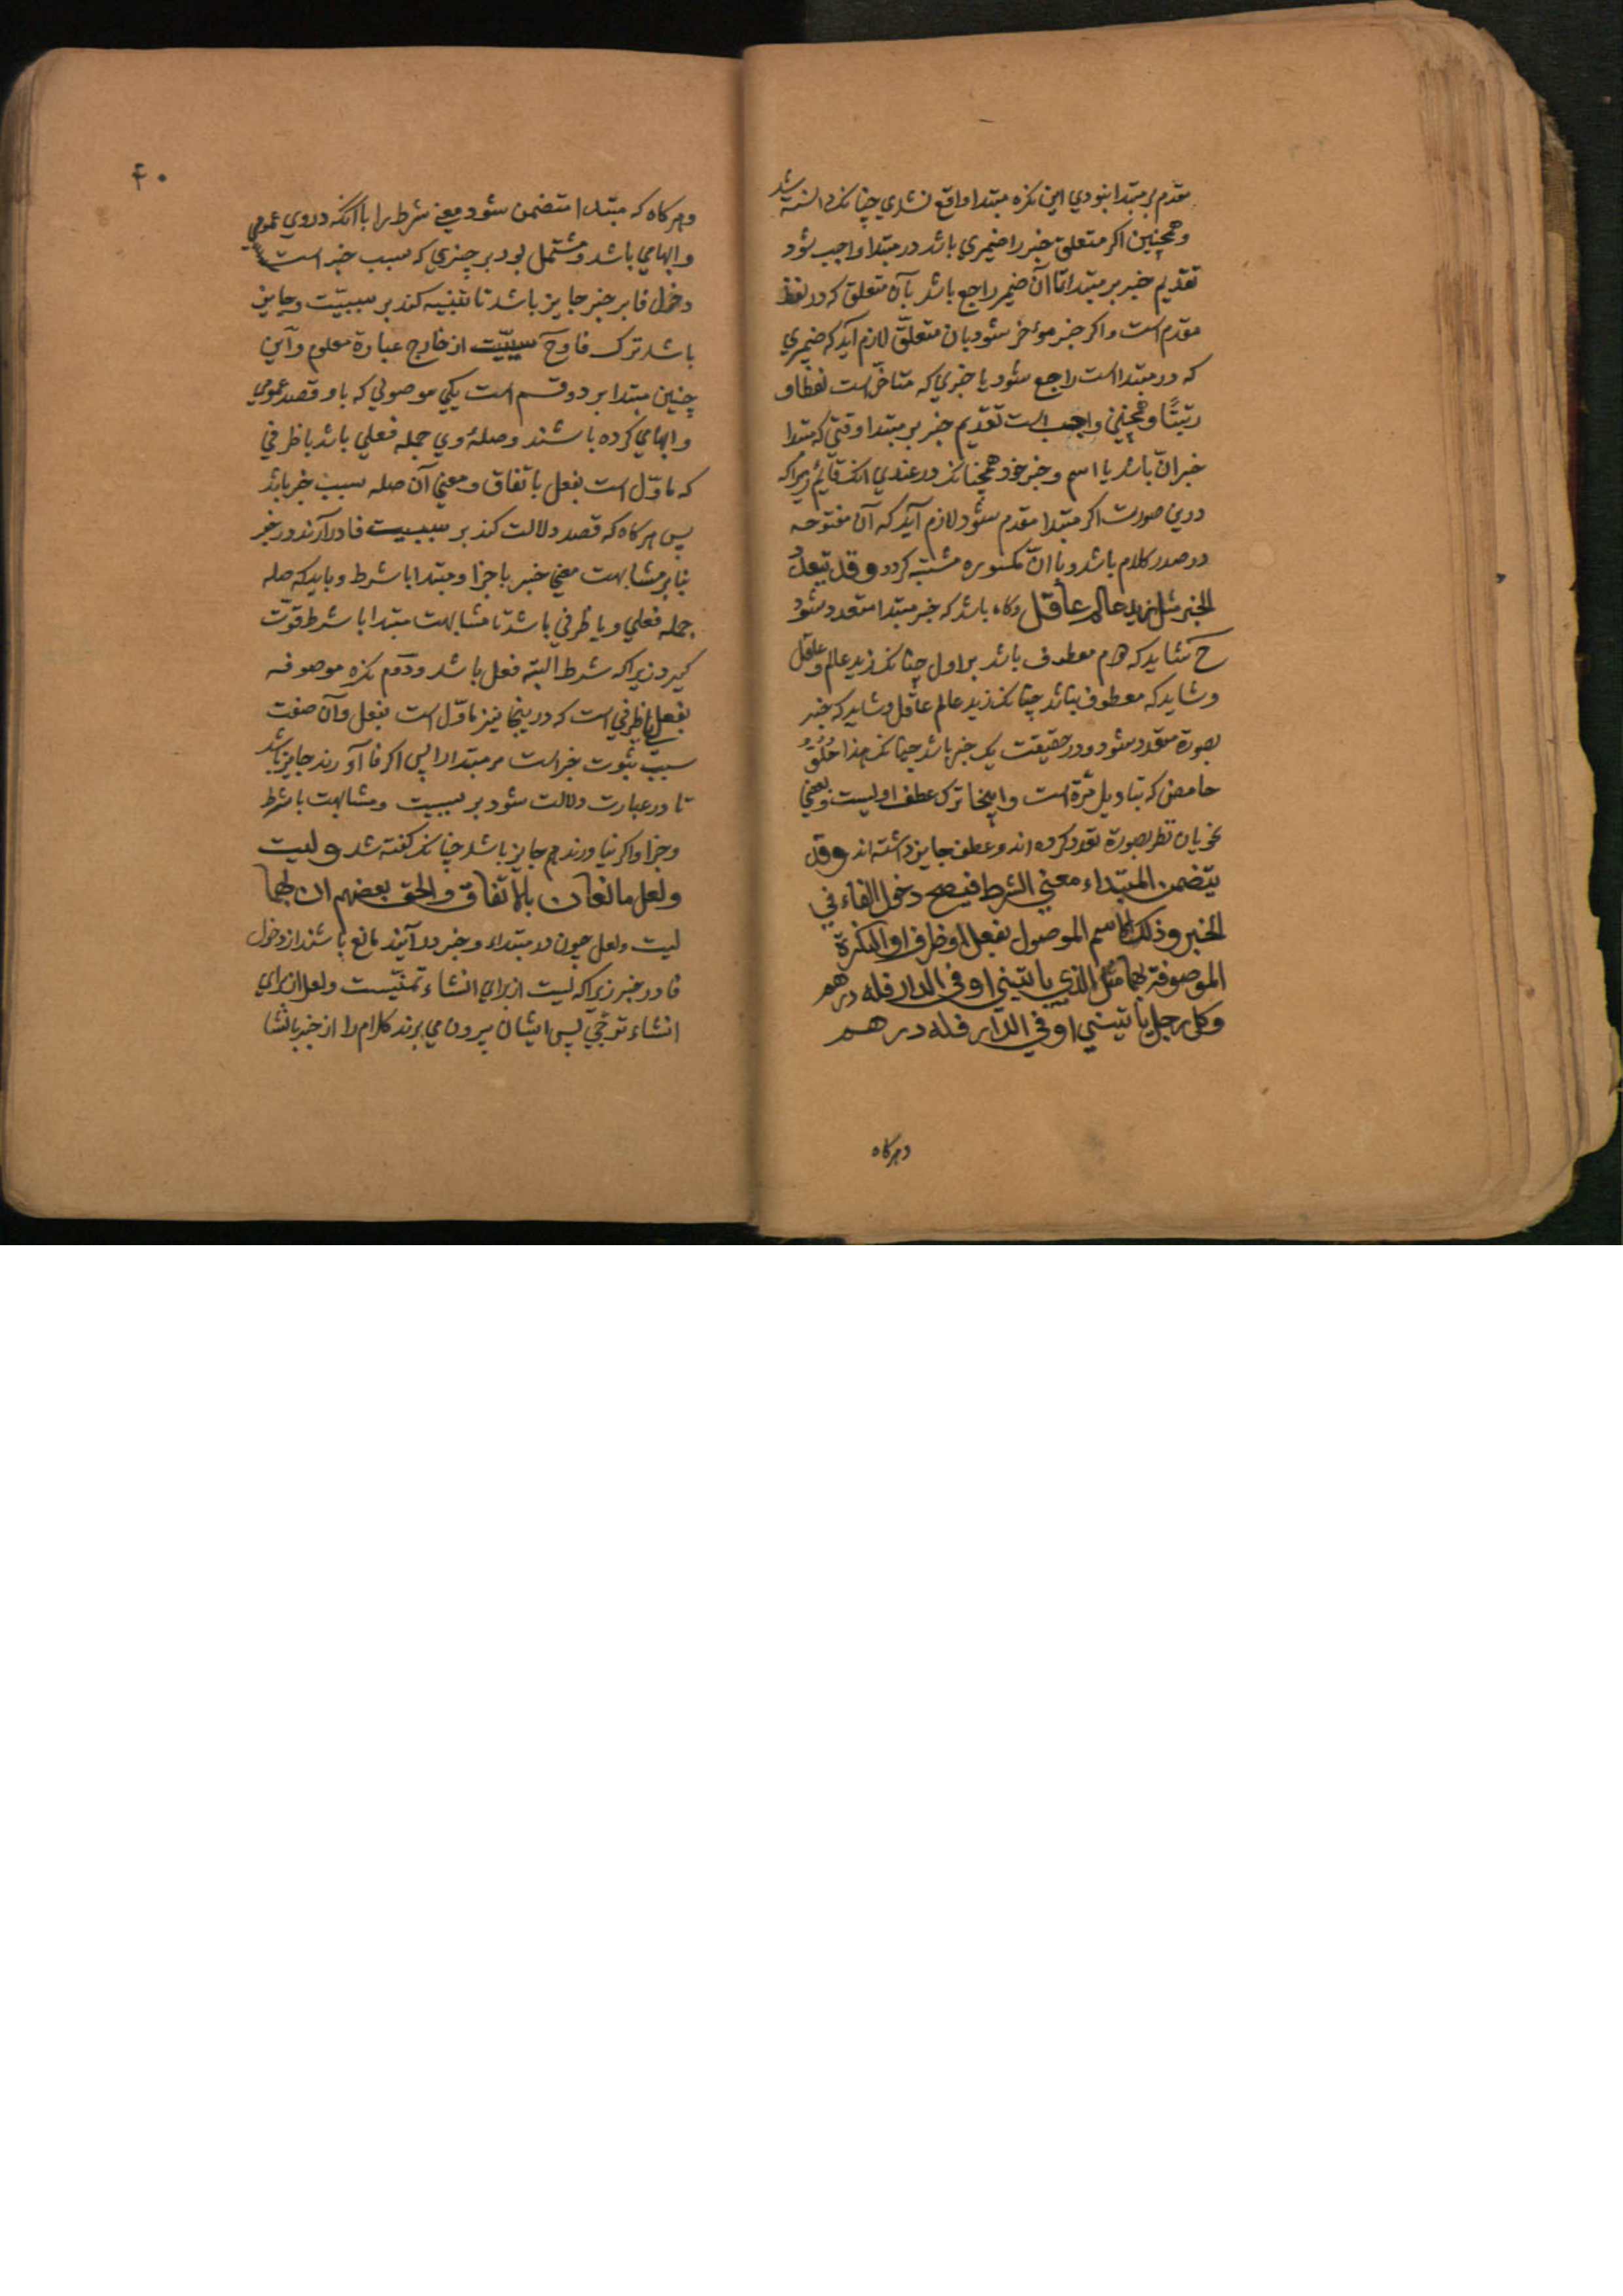 مقدم بر مبتدا نبودي اين نكره مبتدا واقع نشدي چنانكه دانسته شد
وهمچنين اكر متعلق خبر را ضميري باشد در مبتدا واجب شود
تقديم خبر بر مبتدا تا آن ضمير راجع باشد بآن متعلق كه در لفظ
مقدم است واكر خبر موٴخر شود بان متعلّق لازم آيد كه ضميري
كه در مبتدا است راجع شود با خبري كه متاخّر است لفظا و
رتبتًا وهمچنين واجب است تقديم خبر بر مبتدا وقتي كه مبتدا
خبر انّ باشد با اسم و خبر خود همچنانكه در عندي انك قايم زيراكه
درين صورت اكر مبتدا مقدم شود لازم آيد كه آن مفتوحه
در صدر كلام باشد و با انّ مكسوره مشتبه كردد وقد يتعدد
الخبر مثل زيد عالم عاقل وكاه باشد كه خبر مبتدا متعدد شود
ح شايد كه دوم معطوف باشد بر اول چنانكه زيد عالم وعاقل
وشايد كه معطوف نباشد چنانكه زيد عالم عاقل وشايد كه خبر
بصورة متعدد شود ودر حقيقت يك خبر باشد چنانكه هذا حُلْوٌ
حامض كه بتاويل مُزّة است واينجا ترك عطف اوليست وبعضي
نحويان نظر بصورة تعدد كرده اند وعطف جايز داشته اند وقد
يتضمن المبتداء معني الشرط فيصح دخول الفاء في
الخبر وذلك الاسم الموصول بفعل او ظرف او النكرة
الموصوفة بهما مثل الذي ياتيني او في الدار فله درهم
وكل رجل ياتيني او في الدار فله درهم
وهركاه
۴۰
وهركاه كه مبتدا متضمن شود معني شرط را با آنكه در وي عمومي
وابهامي باشد ومشتمل بود بر چيزي كه سبب خبر است
دخول فا بر خبر جايز باشد تا تنبيه كند بر سببيّت وجايز
باشد ترك فا وح سببيّت از خارج عبارة معلوم واين
چنين مبتدا بر دو قسم است يكي موصولي كه باو قصد عمومي
وابهامي كرده باشند وصلهٔ وي جمله فعلي باشد يا ظرفي
كه ماوّل است بفعل باتفاق ومعني آن صله سبب خبر باشد
پس هركاه كه قصد دلالت كند بر سببيت فا درآرند در خبر
بنابر مشابهت معني خبر با جزا ومبتدا با شرط وبايد كه صله
جمله فعلي ويا ظرفي باشد تا مشابهت مبتدا با شرط قوّت
كيرد زيراكه شرط البته فعل باشد ودوّم نكره موصوفه
بفعل يا ظرفي است كه در ينجا نيز ماوّل است بفعل وآن صفت
سبب ثبوت خبر است مر مبتدا را پس اكر فا آورند جايز باشد
تا در عبارت دلالت شود بر سببيت ومشابهت با شرط
وجزا واكر نياورند هم جايز باشد چنانكه كفته شد وليت
ولعل مانعان بالاتفاق والحق بعضهم ان بهما
ليت ولعل چون در مبتداء وخبر درآيند مانع باشند از دخول
فا در خبر زيراكه ليت از براي انشاء تمنّيست ولعل از براي
انشاء ترجّي پس ايشان بيرون مي برند كلام را از خبر بانشا